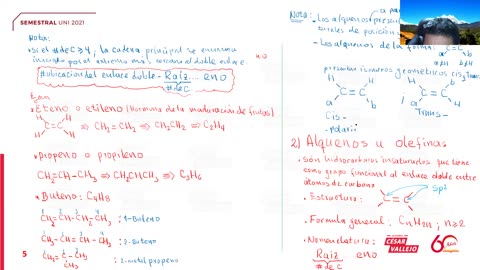 SEMESTRAL UNI 2021
Nota:
si el # de C ≥ 4, la cadena principal se enumera
iniciando por el extremo más cercano al doble enlace.
#ubicación del enlace doble - Raíz ... eno
# de C
Eteno o etileno (Hormona de la maduración de frutas)
H H
C = C
H H
⇒ CH₂ = CH₂ ⇒ CH₂CH₂ ⇒ C₂H₄
Propeno o propileno
CH₂=CH-CH₃ ⇒ CH₂CHCH₃ ⇒ C₃H₆
Buteno: C₄H₈
CH₂ = CH - CH₂ - CH₃ : 1-Buteno
CH₃ - CH = CH - CH₃ : 2-Buteno
CH₂ = C - CH₃ : 2-metil propeno
CH₃
5
Nota:
- Los alquenos presentan
de posición
- Los alquenos de la forma:
a b
C = C
H
presentan isómeros geométricos cis, trans
H H
C = C
a b
Cis -
C = C
Trans -
2) Alquenos u olefinas
son hidrocarburos insaturados que tiene
como grupo funcional al enlace doble entre
átomos de carbono
Estructura:
C = C
sp²
Formula general: CnH2n ; n≥2
Nomenclatura:
Raíz eno
# de C
ACADEMIA
CÉSAR
VALLEJO
60